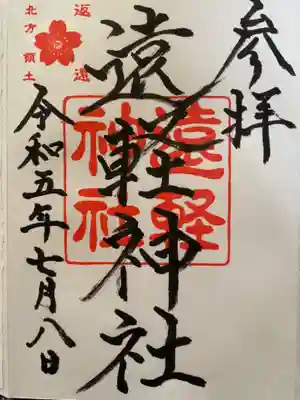 参拝
遠軽神社
遠軽
神社
令和五年七月八日
返還
北方領土